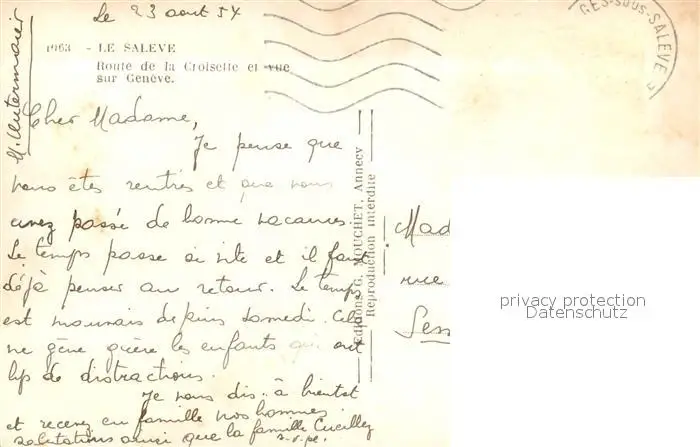 Le 23 aout 54
1963 - LE SALEVE
Route de la Croisette et vue
sur Genève.
GES-SOUS-SALÈVE
Cher Madame,
Je pense que
vous êtes rentrés et que vous
avez passé de bonne vacances.
Le temps passe si vite et il faut
déjà penser au retour. Le temps
est mauvais depuis samedi. Cela
ne gêne guère les enfants qui ont
de distractions.
Je vous dis à bientot
et recevez en famille nos bonnes
salutations ainsi que la famille
Editions G. MOUCHET, Annecy
Reproduction interdite
Mad
rue
privacy protection
Datenschutz